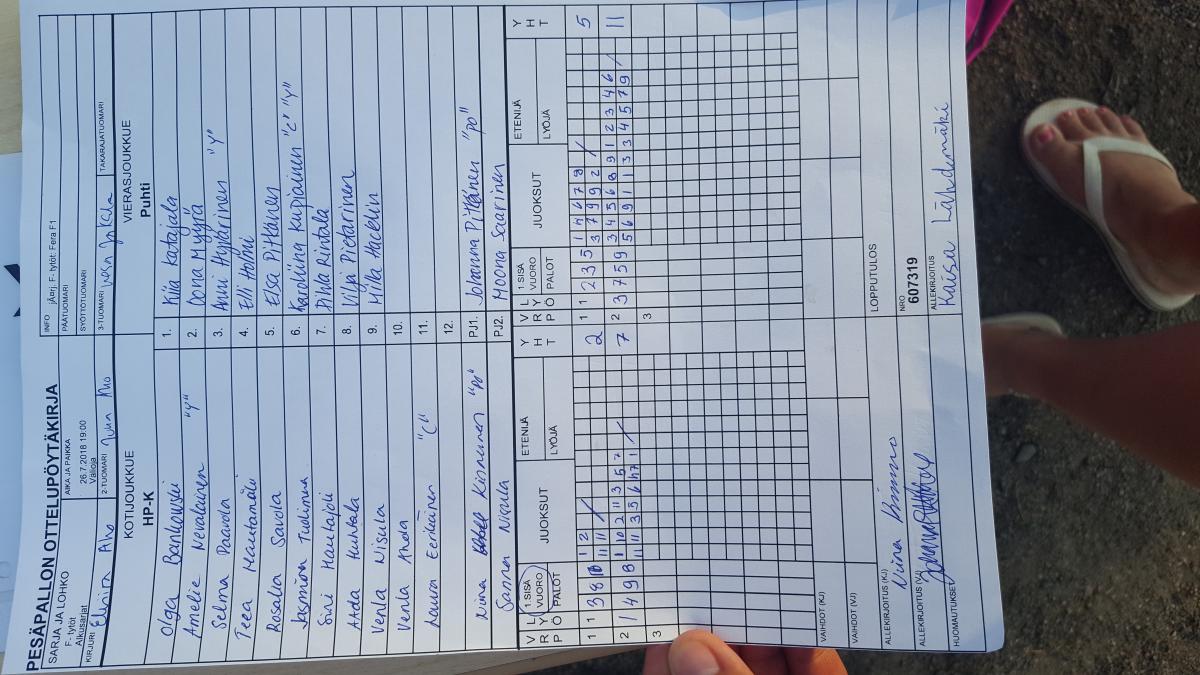 PESÄPALLON OTTELUPÖYTÄKIRJA
SARJA JA LOHKO
F- tytöt
Alkusarjat
AIKA JA PAIKKA
26.7.2018 19:00
Välioja
INFO jÄarj. F- tytöt: Fera F1
PÄÄTUOMARI
SYÖTTÖTUOMARI
KIRJURI Elviira Aho
2-TUOMARI
3-TUOMARI
TAKARAJATUOMARI
KOTIJOUKKUE
HP-K
VIERASJOUKKUE
Puhti
Olga Bankowski 1. Kiia Katajala
Amelie Nevalainen "Y" 2. Oona Myyrä
Selma Paavola 3. Anni Hyvärinen "Y"
Teea Hautamäki 4. Elli Holmi
Rosala Savola 5. Elsa Pitkänen
Jasmina Tuolimaa 6. Karoliina Kupiainen "C" "Y"
Sini Hautajoli 7. Pihla Rintala
Aada Huhtala 8. Vilja Pietarinen
Venla Nisula 9. Milla Hacklin
Venla Ahola 10.
Naura Eerikäinen "C" 11.
12.
Niina Kinnunen "PO" PJ1. Johanna Pitkänen "PO"
Sanna Nisula PJ2. Moona Saarinen
V R L Y Ö 1.SISÄ VUORO PALOT JUOKSUT ETENIJÄ LYÖJÄ Y H T V R L Y Ö 1.SISÄ VUORO PALOT JUOKSUT ETENIJÄ LYÖJÄ Y H T
1 1 3 8 1 2 / 2 1 1 2 3 5 1 4 6 7 8 / 5
11 11 3 7 9 9 2
2 1 4 9 8 1 10 2 11 3 5 7 / 7 2 3 7 5 9 3 4 5 6 8 9 1 2 3 4 6 / 11
11 11 3 5 6 7 1 5 6 9 1 1 3 3 4 5 7 9
3 3
VAIHDOT (KJ)
VAIHDOT (VJ)
LOPPUTULOS
ALLEKIRJOITUS (KJ) Niina Kinnunen
NRO
607319
ALLEKIRJOITUS (VJ)
ALLEKIRJOITUS
Kaisu Lähdemäki
HUOMAUTUKSET